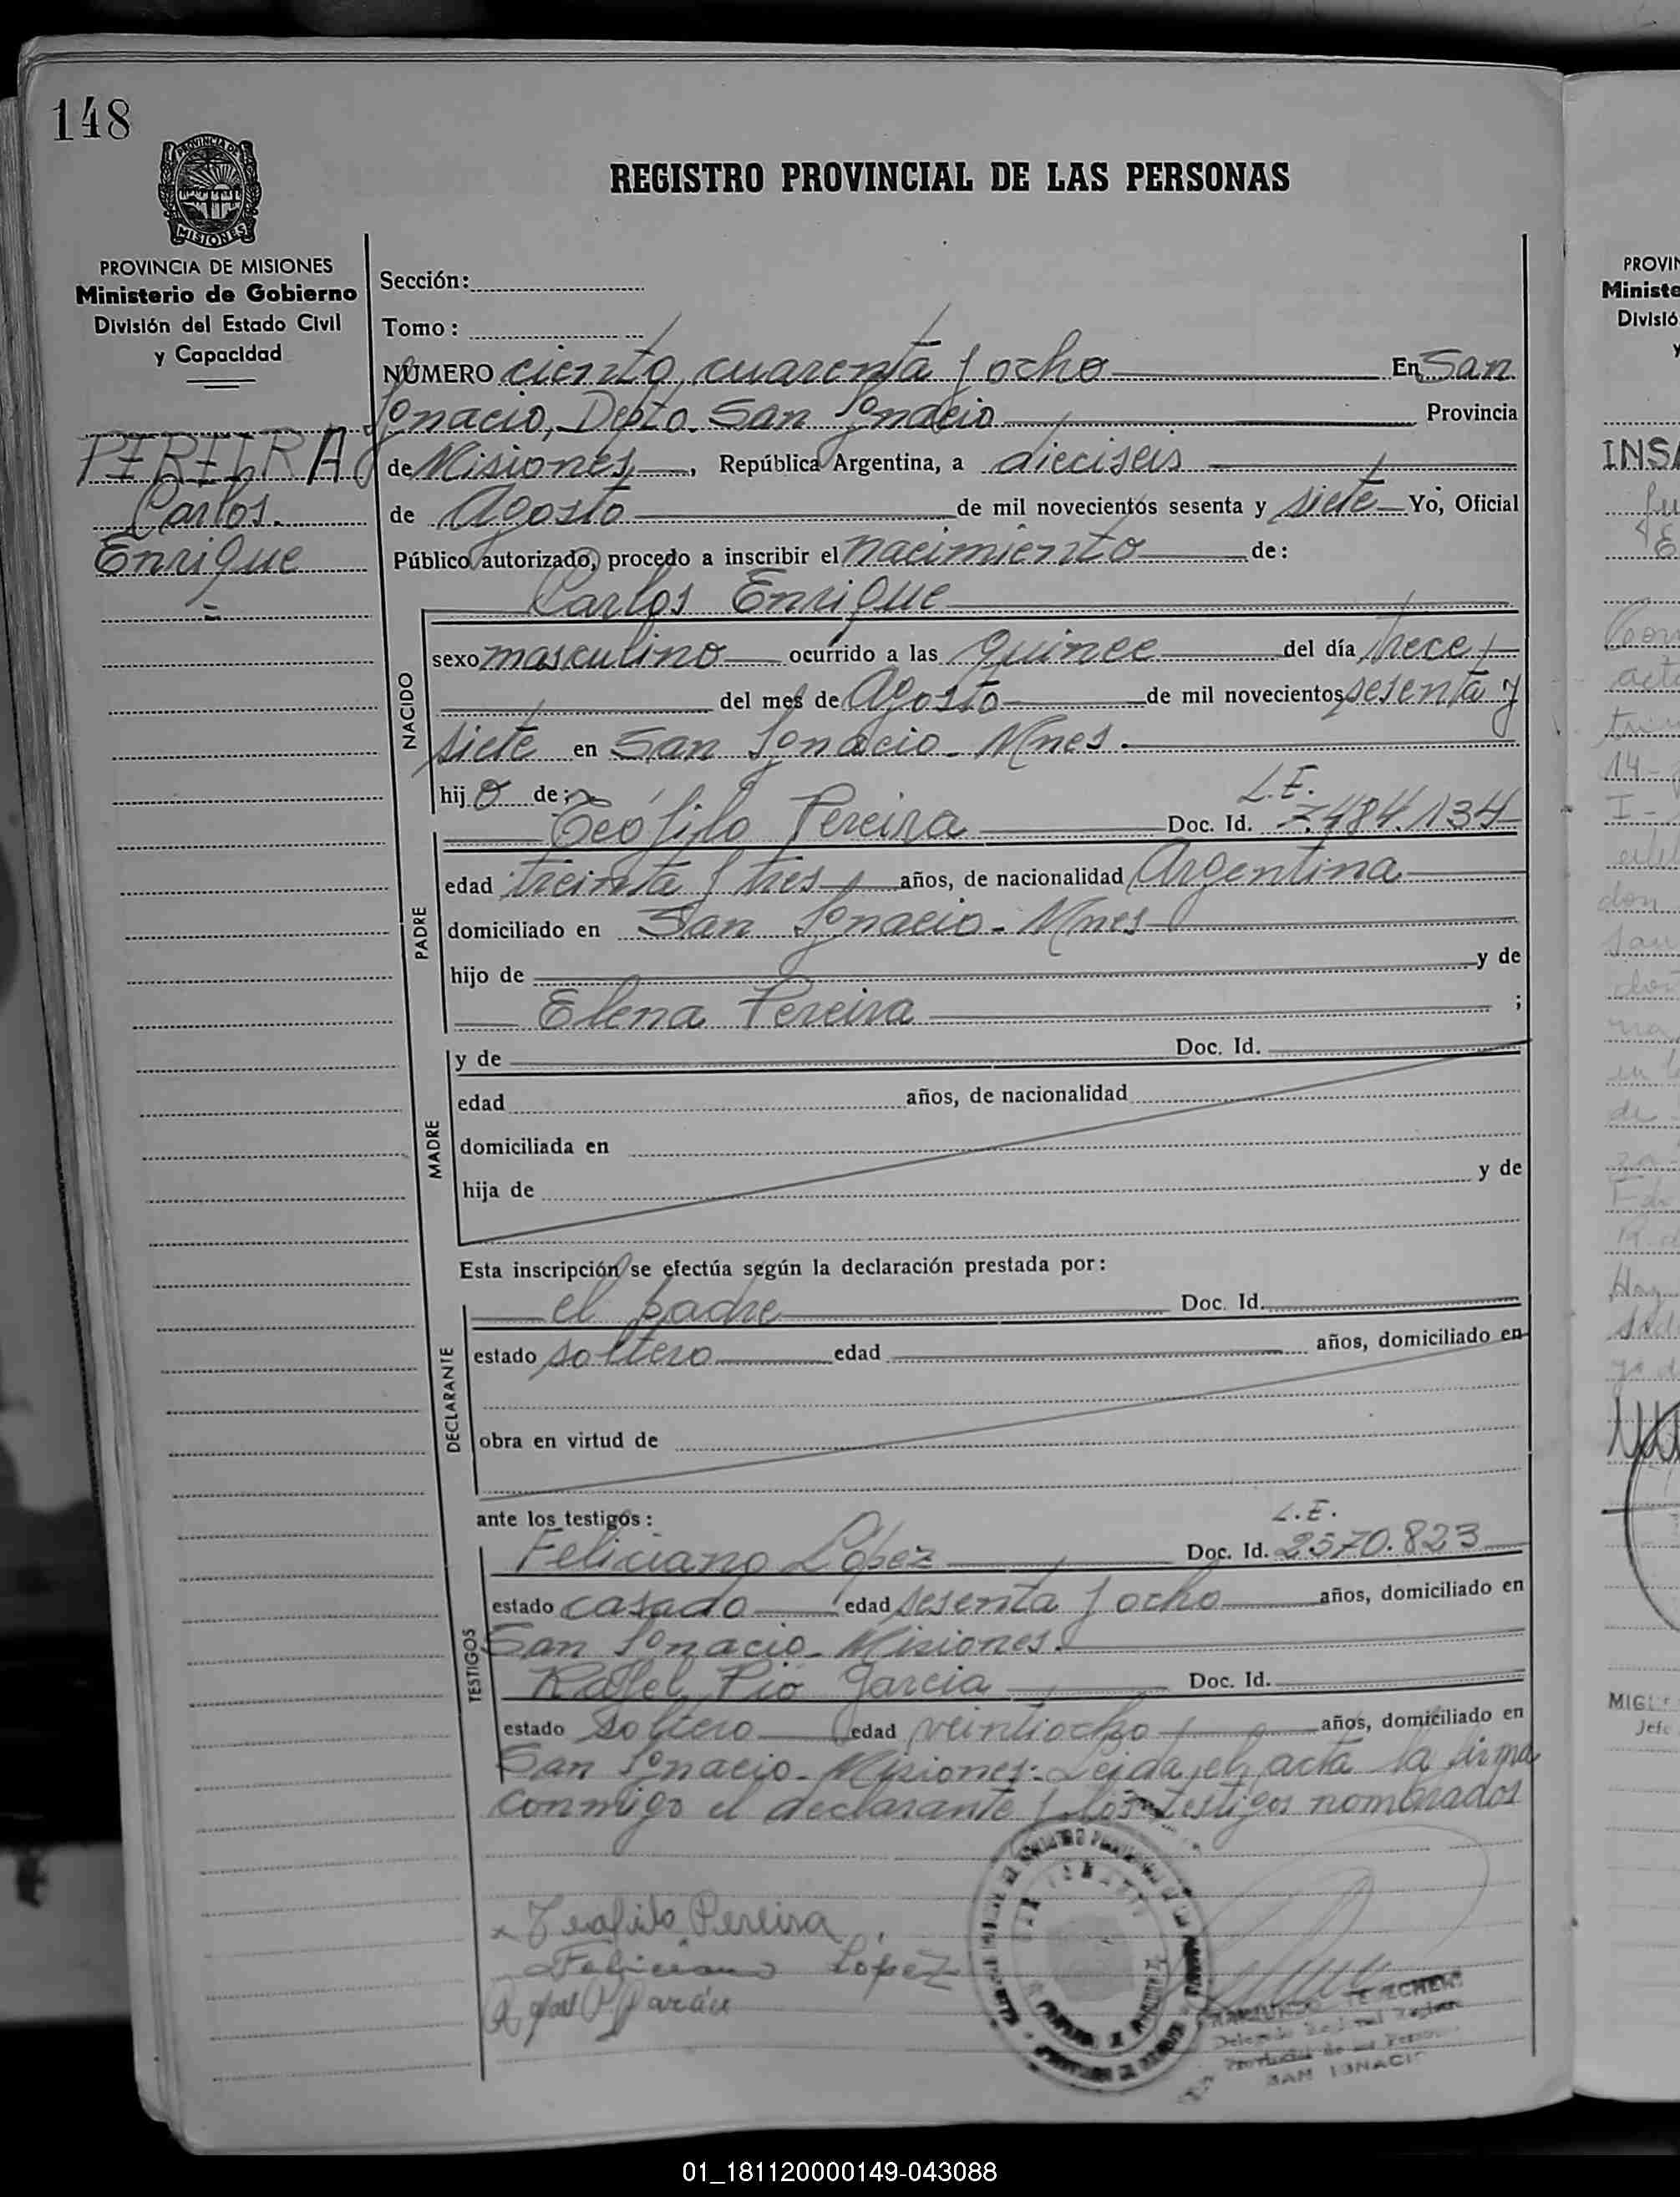 148
PROVINCIA DE
MISIONES
REGISTRO PROVINCIAL DE LAS PERSONAS
PROVINCIA DE MISIONES
Ministerio de Gobierno
División del Estado Civil
y Capacidad
PEREIRA
Carlos
Enrique
Sección:
Tomo:
NÚMERO ciento cuarenta y ocho En San
Ignacio, Depto. San Ignacio Provincia
de Misiones, República Argentina, a dieciseis
de Agosto de mil novecientos sesenta y siete Yo, Oficial
Público autorizado, procedo a inscribir el nacimiento de:
Carlos Enrique
NACIDO
sexo masculino ocurrido a las quince del día trece
del mes de Agosto de mil novecientos sesenta y
siete en San Ignacio - Mnes.
hijo de:
L.E.
Teófilo Pereira Doc. Id. 7.484.134
PADRE
edad treinta y tres años, de nacionalidad Argentina
domiciliado en San Ignacio - Mnes
hijo de y de
Elena Pereira ;
MADRE
y de Doc. Id.
edad años, de nacionalidad
domiciliada en
hija de y de
Esta inscripción se efectúa según la declaración prestada por:
DECLARANTE
el padre Doc. Id.
estado soltero edad años, domiciliado en
obra en virtud de
ante los testigos:
L.E.
TESTIGOS
Feliciano López Doc. Id. 2570.823
estado casado edad sesenta y ocho años, domiciliado en
San Ignacio - Misiones.
Rafael Pio Garcia Doc. Id.
estado soltero edad veintiocho años, domiciliado en
San Ignacio - Misiones. Leida el acta la firma
conmigo el declarante y los testigos nombrados
Teofilo Pereira
Feliciano Lopez
SAN IGNACIO
PROVIN
Ministe
Divisió
y
INSA
14-
I-
MIGU
Jefe
01_181120000149-043088